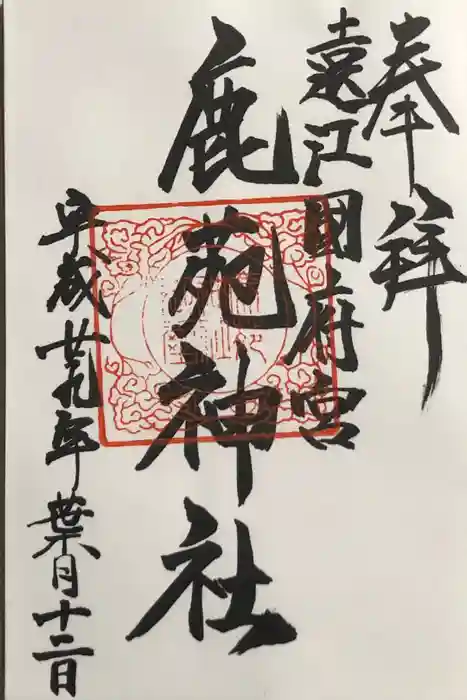 奉拝
遠江国府宮
鹿苑神社
平成廿九年葉月十二日